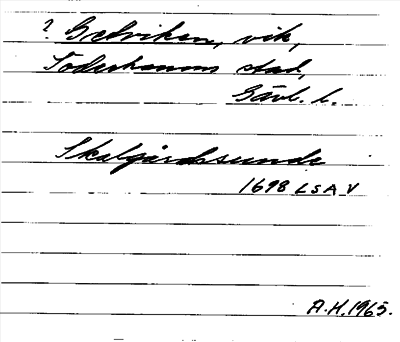 ? Gelviken, vik,
Söderhamns stad,
Gävl. l.
Skalgårdssunde
1698 LSA V
A.H. 1965.